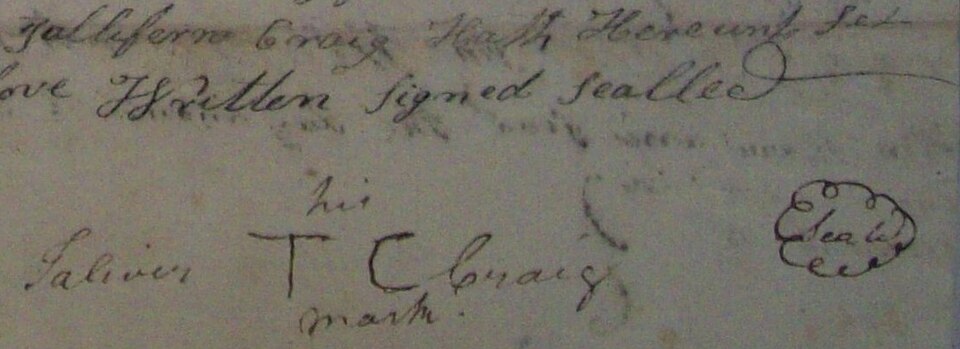 Talliferro Craig Hath Hereunt Set
ove Written signed sealled
his
Taliver T C Craig Seal
mark.